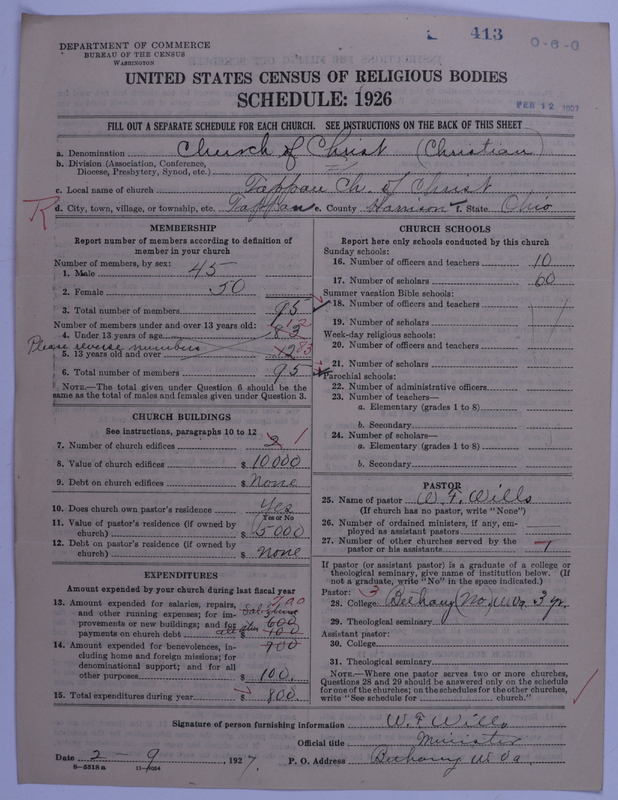 413
0-6-0
DEPARTMENT OF COMMERCE
BUREAU OF THE CENSUS
WASHINGTON
UNITED STATES CENSUS OF RELIGIOUS BODIES
SCHEDULE: 1926
FEB 12 1927
FILL OUT A SEPARATE SCHEDULE FOR EACH CHURCH. SEE INSTRUCTIONS ON THE BACK OF THIS SHEET
a. Denomination Church of Christ (Christian)
b. Division (Association, Conference, Diocese, Presbytery, Synod, etc.)
c. Local name of church Tappan Ch. of Christ
R
d. City, town, village, or township, etc. Tappan e. County Harrison f. State Ohio
MEMBERSHIP
Report number of members according to definition of member in your church
Number of members, by sex:
1. Male 45
2. Female 50
3. Total number of members 95
Number of members under and over 13 years old:
4. Under 13 years of age 83 12
Please reverse numbers
5. 13 years old and over 12 83
6. Total number of members 95
NOTE.—The total given under Question 6 should be the same as the total of males and females given under Question 3.
CHURCH BUILDINGS
See instructions, paragraphs 10 to 12
7. Number of church edifices 2 1
8. Value of church edifices $ 10000
9. Debt on church edifices $ None
10. Does church own pastor's residence Yes
Yes or No
11. Value of pastor's residence (if owned by church) $ 5000
12. Debt on pastor's residence (if owned by church) $ none
EXPENDITURES
Amount expended by your church during last fiscal year
13. Amount expended for salaries, repairs, and other running expenses; for improvements or new buildings; and for payments on church debt
700
600
$ 100
700
14. Amount expended for benevolences, including home and foreign missions; for denominational support; and for all other purposes $ 100.
15. Total expenditures during year $ 800.
CHURCH SCHOOLS
Report here only schools conducted by this church
Sunday schools:
16. Number of officers and teachers 10
17. Number of scholars 60
Summer vacation Bible schools:
18. Number of officers and teachers
19. Number of scholars
Week-day religious schools:
20. Number of officers and teachers
21. Number of scholars
Parochial schools:
22. Number of administrative officers
23. Number of teachers—
a. Elementary (grades 1 to 8)
b. Secondary
24. Number of scholars—
a. Elementary (grades 1 to 8)
b. Secondary
PASTOR
25. Name of pastor W. F. Wills
(If church has no pastor, write "None")
26. Number of ordained ministers, if any, employed as assistant pastors
27. Number of other churches served by the pastor or his assistants 1
If pastor (or assistant pastor) is a graduate of a college or theological seminary, give name of institution below. (If not a graduate, write "No" in the space indicated.)
Pastor: 3
28. College Bethany (No) W. Va. 3 yr.
29. Theological seminary
Assistant pastor:
30. College
31. Theological seminary
NOTE.—Where one pastor serves two or more churches, Questions 28 and 29 should be answered only on the schedule for one of the churches; on the schedules for the other churches, write "See schedule for church."
Signature of person furnishing information W. F. Wills
Official title Minister
Date 2 - 9, 1927. P. O. Address Bethany W. Va.
8-5518a 11-9054